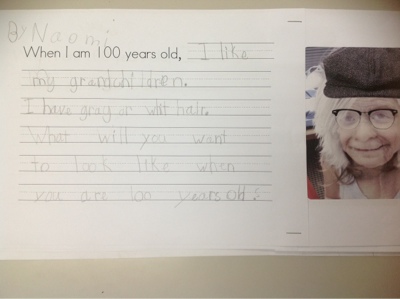 By Naomi
When I am 100 years old, I like
my grandchildren.
I have gray or whit hair.
What will you want
to look like when
you are 100 years old?